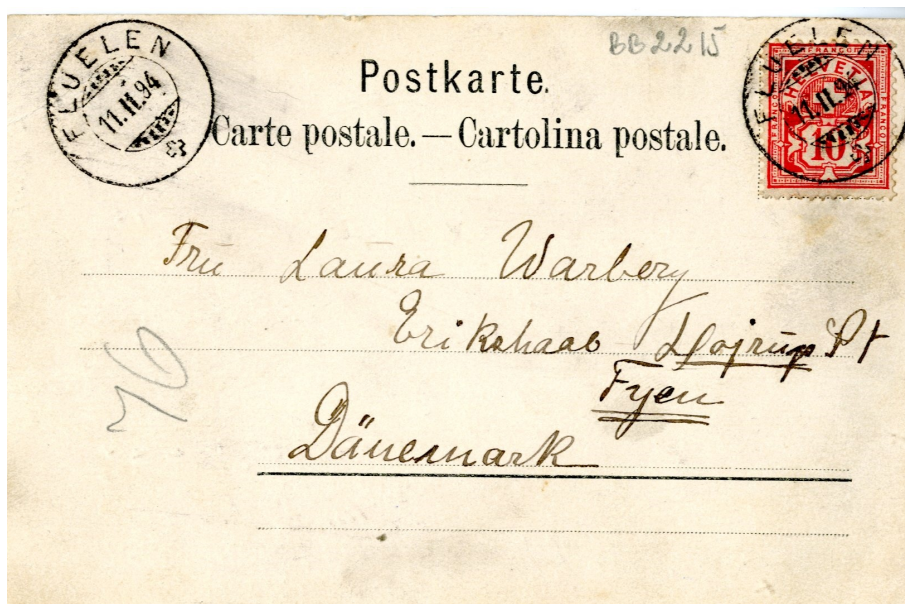 BB2215
FLUELEN
11.II.94
Postkarte.
Carte postale. — Cartolina postale.
FLUELEN
11.II.94
FRANCO
HELVETIA
10
Fru Laura Warberg
Erikshaab Højrup St
Fyen
Dänemark
76